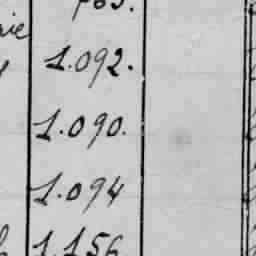 1.092.
1.090.
1.094
1.156